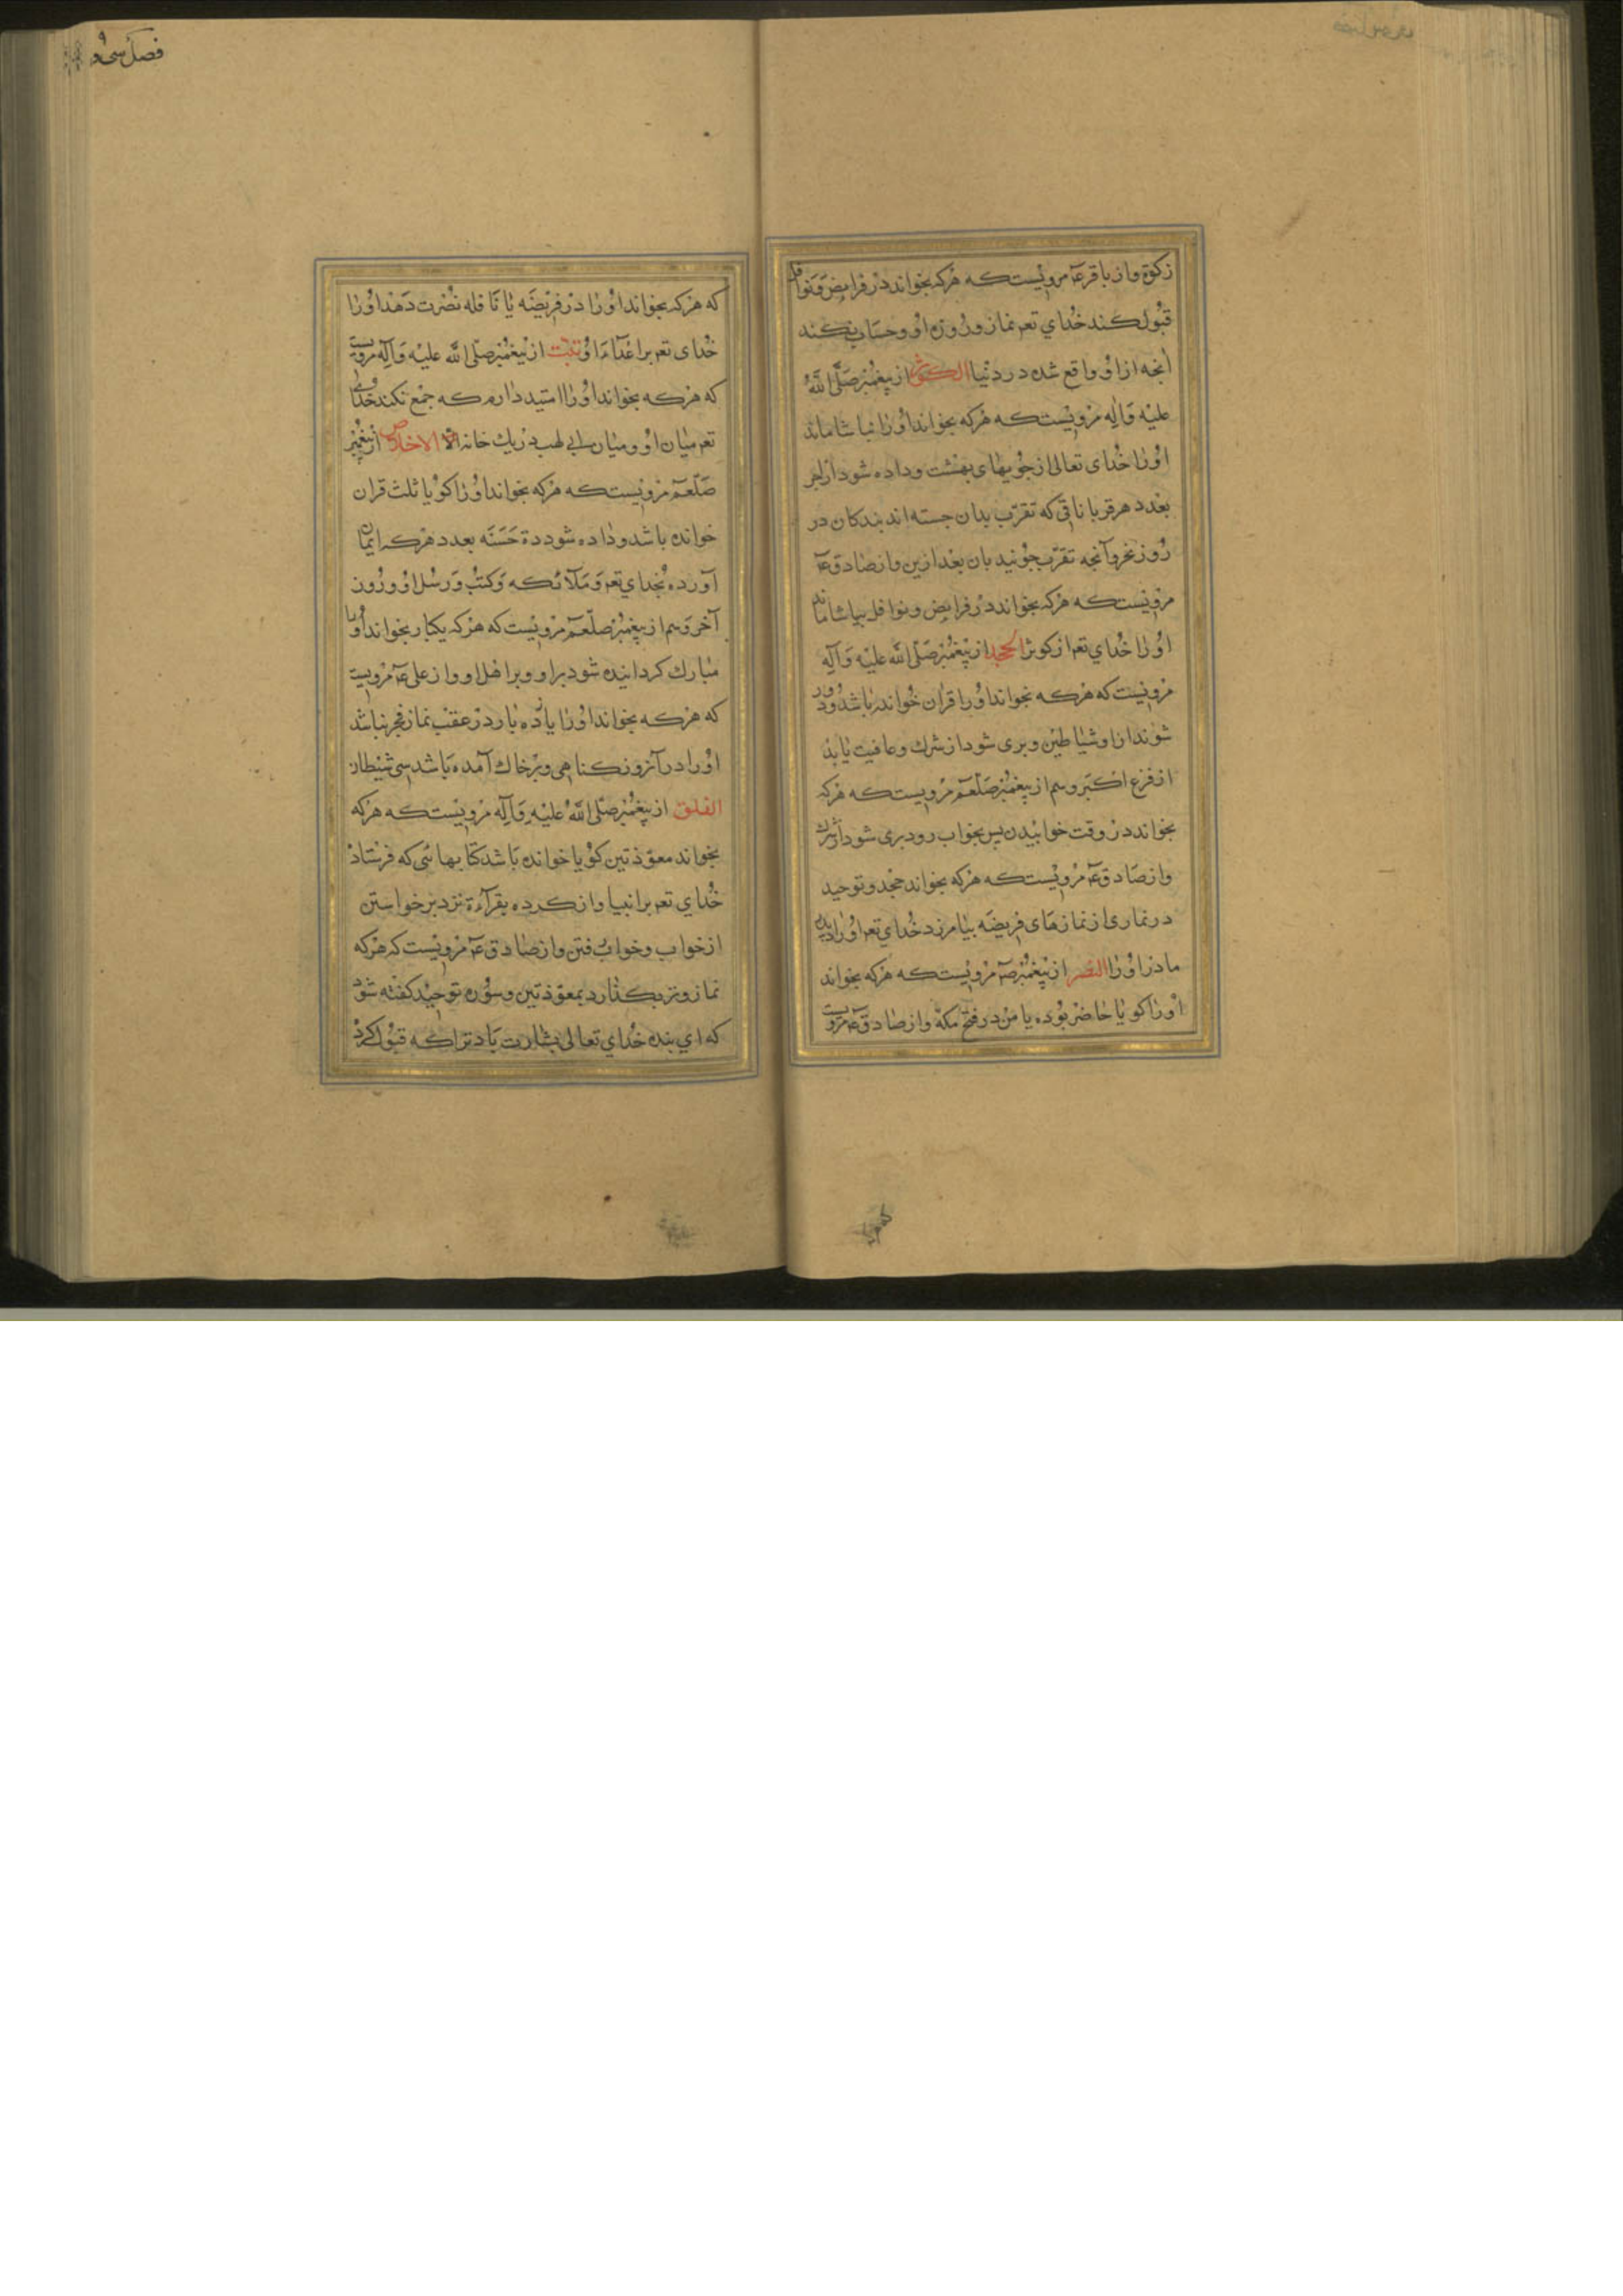 زکوة و از باقر عۤ مرویست که هرکه بخواند در فرایض و نوافل
قبول کند خدای تعۤ نماز و روزه او و حساب نکند
آنجه از او واقع شده در دنیا الکوثر از پیغمبر صلّی اللّه
علیه و آله مرویست که هرکه بخواند او را بیاشاماند
او را خدای تعالی از جویهای بهشت و داده شود از اجر
بعدد هر قربانائی که تقرّب بدان جسته اند بندکان در
روز نحر و آنجه تقرّب جویند بان بعد ازین و از صادق عۤ
مرویست که هرکه بخواند در فرایض و نوافل بیاشاماند
او را خدای تعۤ از کوثر الجحد از پیغمبر صلّی اللّه علیه و آله
مرویست که هرکه بخواند او را قران خوانده باشد و دور
شوند از او شیاطین و بری شود از شرک و عافیت یابد
از فزع اکبر و هم از پیغمبر صلّعم مرویست که هرکه
بخواند در وقت خوابیدن پس بخواب رود بری شود از شرک
و از صادق عۤ مرویست که هرکه بخواند جحد و توحید
در نماری از نمازهای فریضه بیامرزد خدای تعۤ او را و
مادر او را النصر از پیغمبر صۤ مرویست که هرکه بخواند
او را کویا حاضر بوده با من در فتح مکّه و از صادق عۤ مرویست
فصل سی و
که هرکه بخواند او را در فریضه یا نافله نصرت دهد او را
خدای تعۤ بر اعدآء او تبّت از پیغمبر صلّی اللّه علیه و آله مرویست
که هرکه بخواند او را امّید دارم که جمع نکند خدای
تعۤ میان او و میان ابی لهب در یک خانه الاخلاص از پیغمبر
صلّعم مرویست که هرکه بخواند او را کویا ثلث قران
خوانده باشد و داده شود ده حسنه بعدد هرکه ایمان
آورده بخدای تعۤ و ملآئکه و کتب و رسل او و روز
آخر و هم از پیغمبر صلّعم مرویست که هرکه یکبار بخواند او را
مبارک کردانیده شود بر او و بر اهل او و از علی عۤ مرویست
که هرکه بخواند او را یازده بار در عقب نماز فجر نباشد
او را در آنروز کناهی و بر خاک آمده باشد بینی شیطان
الفلق از پیغمبر صلّی اللّه علیه و آله مرویست که هرکه
بخواند معوّذتین کویا خوانده باشد کتابهائی که فرستاد
خدای تعۤ بر انبیا و از کرده بقرآءة نزد برخواستن
از خواب و خواب رفتن و از صادق عۤ مرویست که هرکه
نماز وتر بکذارد بمعوّذتین و سوره توحید کفته شود
که ای بنده خدای تعالی بشارت باد ترا که قبول کرد